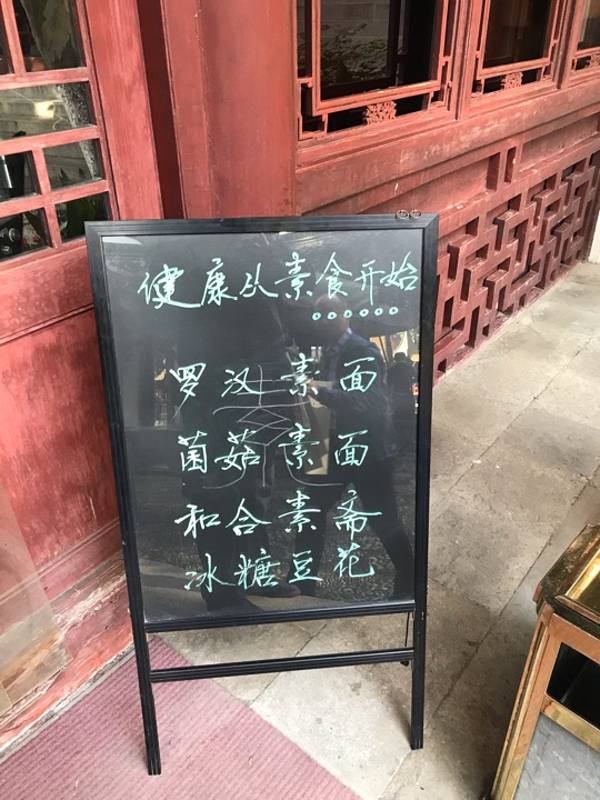 健康从素食开始
。。。。。。
罗汉素面
菌菇素面
和合素斋
冰糖豆花